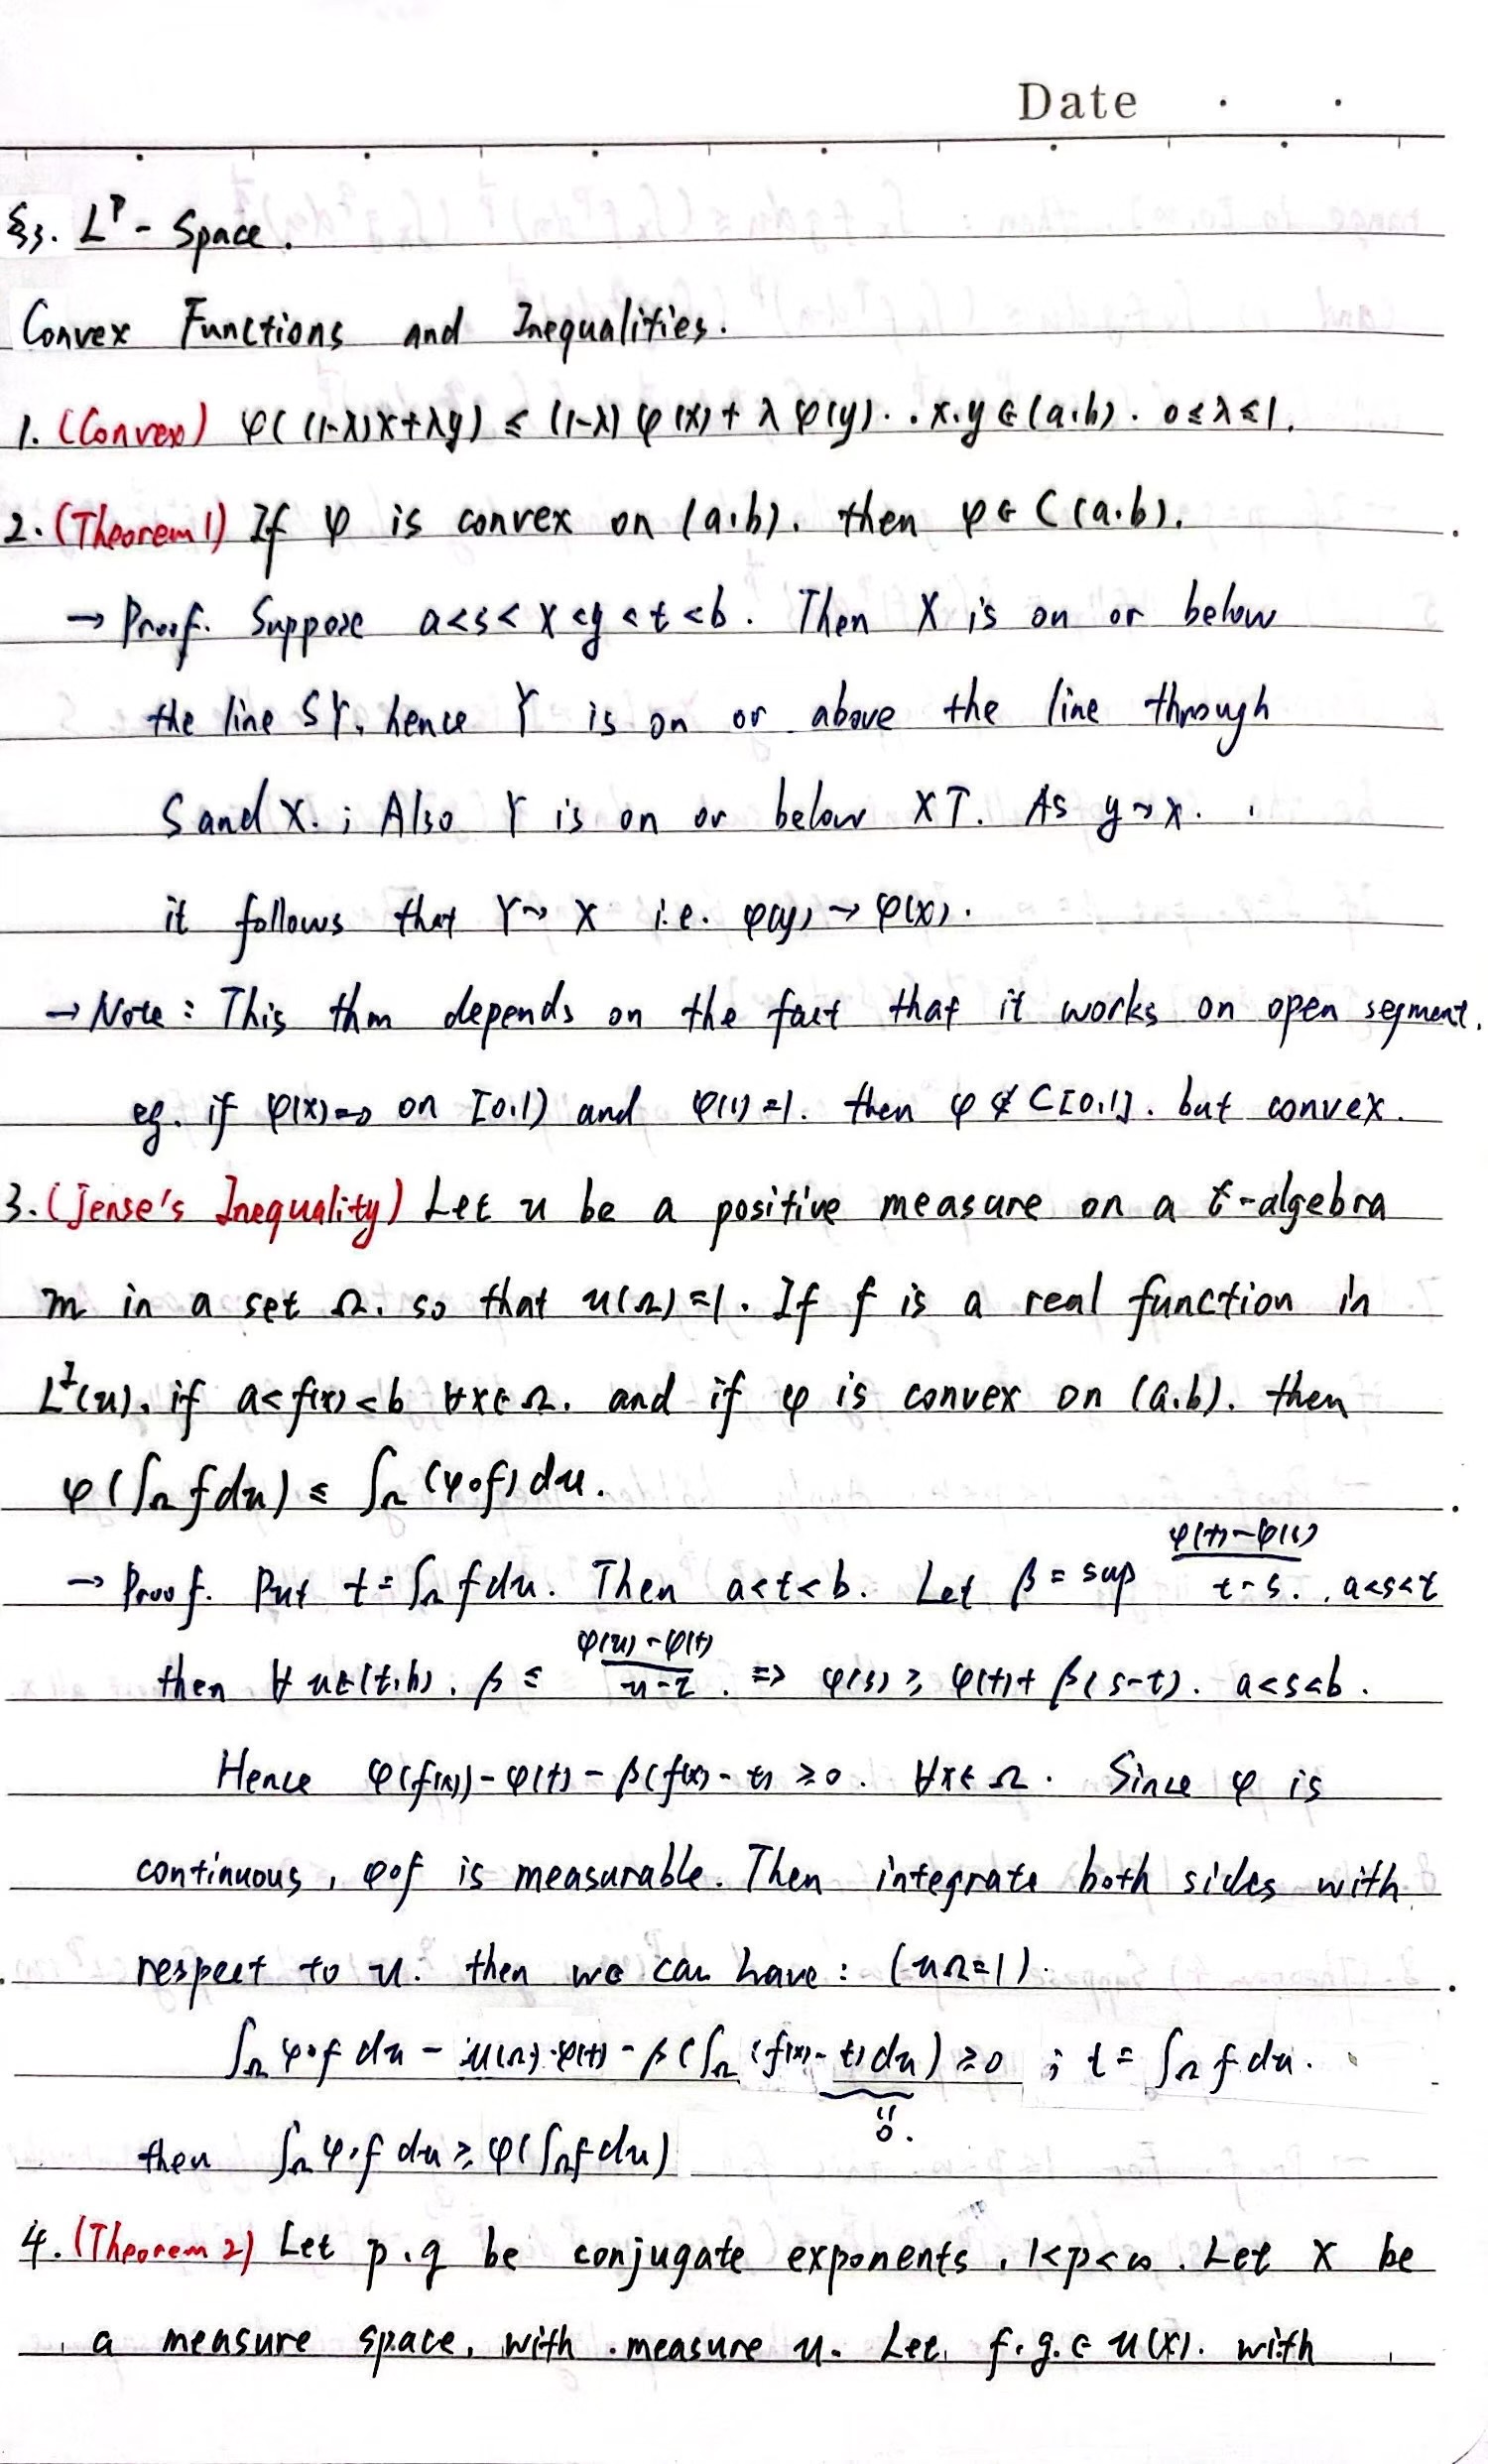 Date
§3. L^p - Space.
Convex Functions and Inequalities.
1. (Convex) φ((1-λ)x+λy) ≤ (1-λ)φ(x)+λφ(y). x,y∈(a,b). 0≤λ≤1.
2. (Theorem 1) If φ is convex on (a,b), then φ∈C(a,b).
→ Proof. Suppose a<s<x<y<t<b. Then X is on or below
the line SY, hence Y is on or above the line through
S and X. ; Also Y is on or below XT. As y→x.
it follows that Y→X i.e. φ(y)→φ(x).
→ Note: This thm depends on the fact that it works on open segment.
eg. if φ(x)=0 on [0,1) and φ(1)=1. then φ∉C[0,1]. but convex.
3. (Jense's Inequality) Let u be a positive measure on a σ-algebra
m in a set Ω, so that u(Ω)=1. If f is a real function in
L^1(u), if a<f(x)<b ∀x∈Ω. and if φ is convex on (a,b). then
φ(∫_Ω f du) ≤ ∫_Ω (φ∘f) du.
→ Proof. Put t=∫_Ω f du. Then a<t<b. Let β = sup (φ(t)-φ(s))/(t-s). , a<s<t
then ∀ u∈(t,b), β ≤ (φ(u)-φ(t))/(u-t). => φ(s) ≥ φ(t)+β(s-t). a<s<b.
Hence φ(f(x))-φ(t)-β(f(x)-t) ≥0. ∀x∈Ω. Since φ is
continuous, φ∘f is measurable. Then integrate both sides with
respect to u. then we can have: (uΩ=1).
∫_Ω φ∘f du - u(Ω)·φ(t) - β(∫_Ω (f(x)-t) du) ≥0 ; t=∫_Ω f du.
" 0.
then ∫_Ω φ∘f du ≥ φ(∫_Ω f du)
4. (Theorem 2) Let p,q be conjugate exponents, 1<p<∞. Let X be
a measure space, with measure u. Let f,g ∈ u(X). with